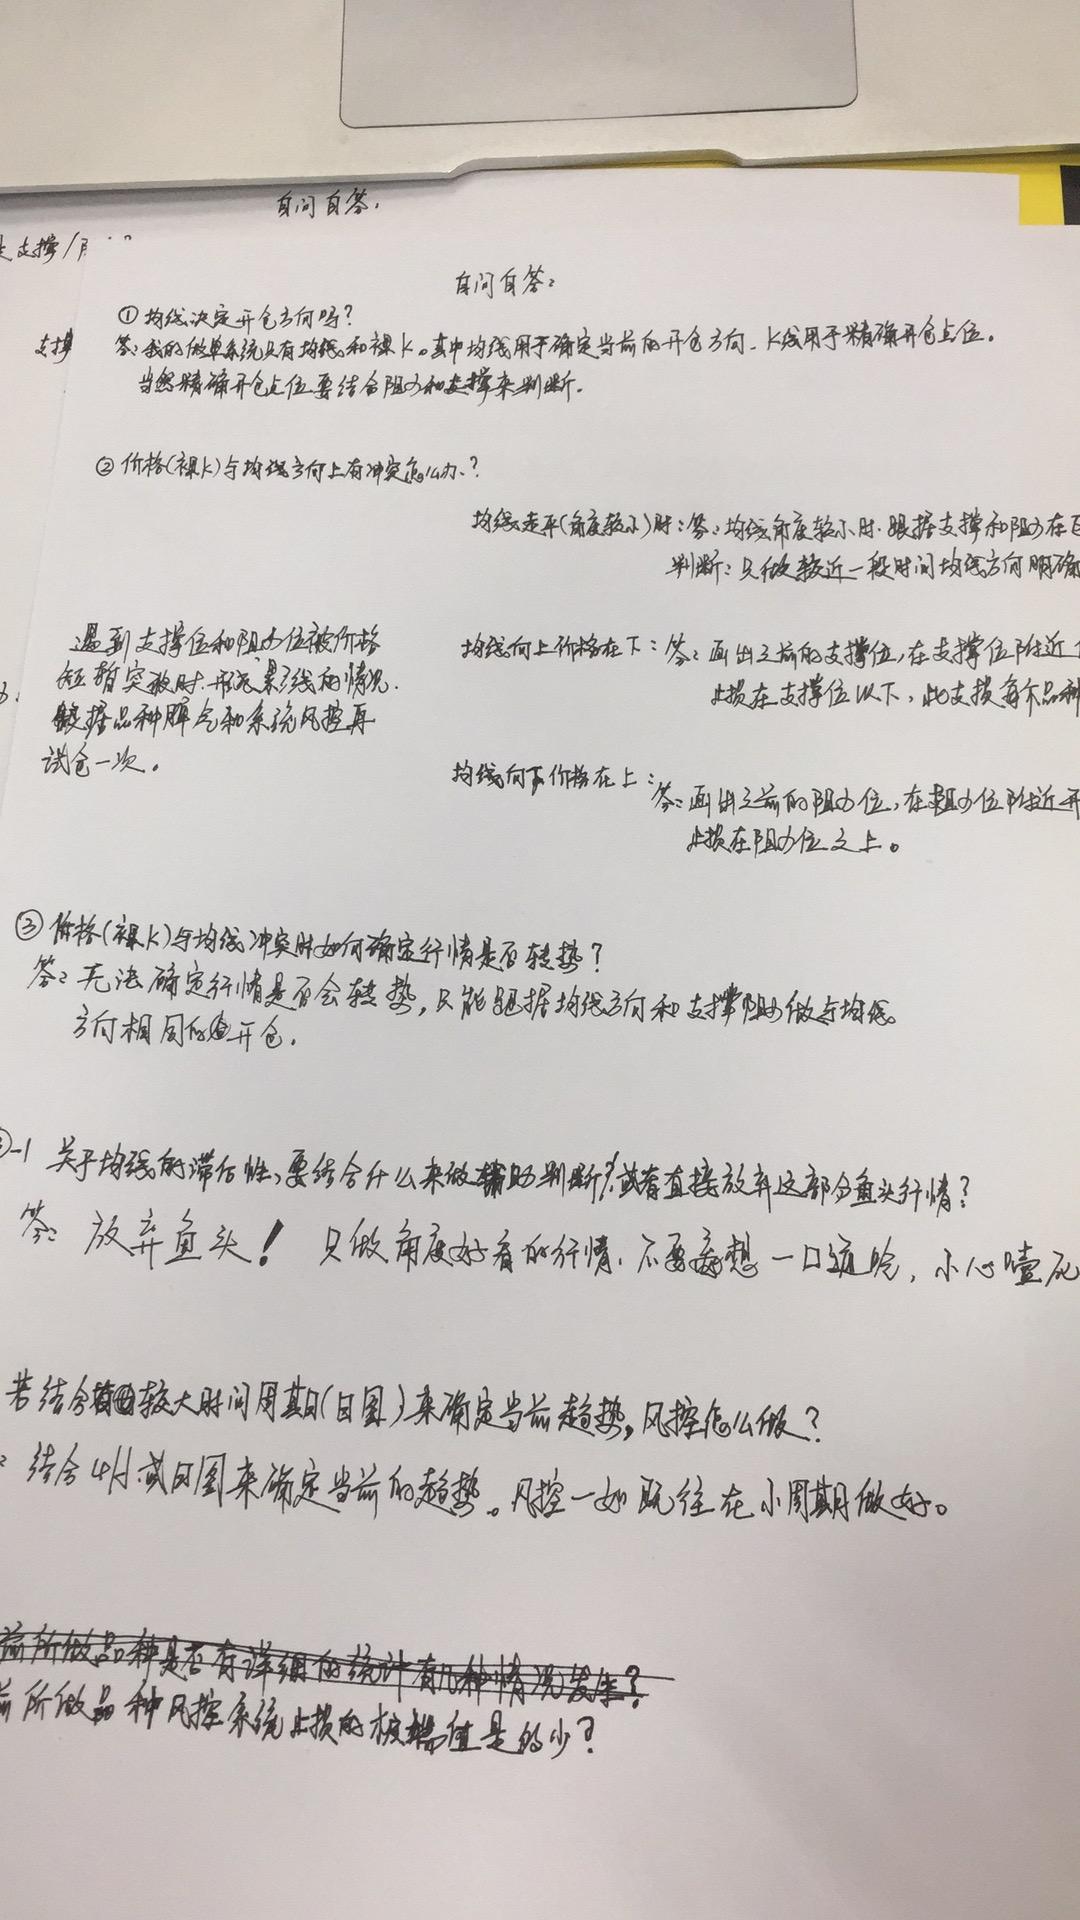 自问自答：
支撑/
自问自答：
①均线决定开仓方向吗？
支撑
答：我的做单系统只有均线和裸K。其中均线用于确定当前的开仓方向、K线用于精确开仓点位。
当然精确开仓点位要结合阻力和支撑来判断。
②价格(裸K)与均线方向上有冲突怎么办？
均线走平(角度较小)时：答：均线角度较小时、跟据支撑和阻力在
判断：只做较近一段时间均线方向明确
均线向上价格在下：答：画出之前的支撑位，在支撑位附近
止损在支撑位以下，此支损每个品种
遇到支撑位和阻力位被价格
短暂突破时.形成 线的情况.
跟据品种脾气和系统风控再
试仓一次。
均线向下价格在上：
答：画出之前的阻力位，在阻力位附近开
止损在阻力位之上。
③价格(裸K)与均线冲突时如何确定行情是否转势？
答：无法确定行情是否会转势，只能跟据均线方向和支撑阻力做与均线
方向相同的开仓.
-1 关于均线的滞后性，要结合什么来做辅助判断？或者直接放弃这部分鱼头行情？
答：放弃鱼头！只做角度好看的行情.不要妄想一口通吃，小心噎死
若结合较大时间周期(日图)来确定当前趋势，风控怎么做？
结合4H或日图来确定当前的趋势。风控一如既往在小周期做好。
前所做品种是否有详细的统计有几种情况发生？
前所做品种风控系统止损的极端值是多少？